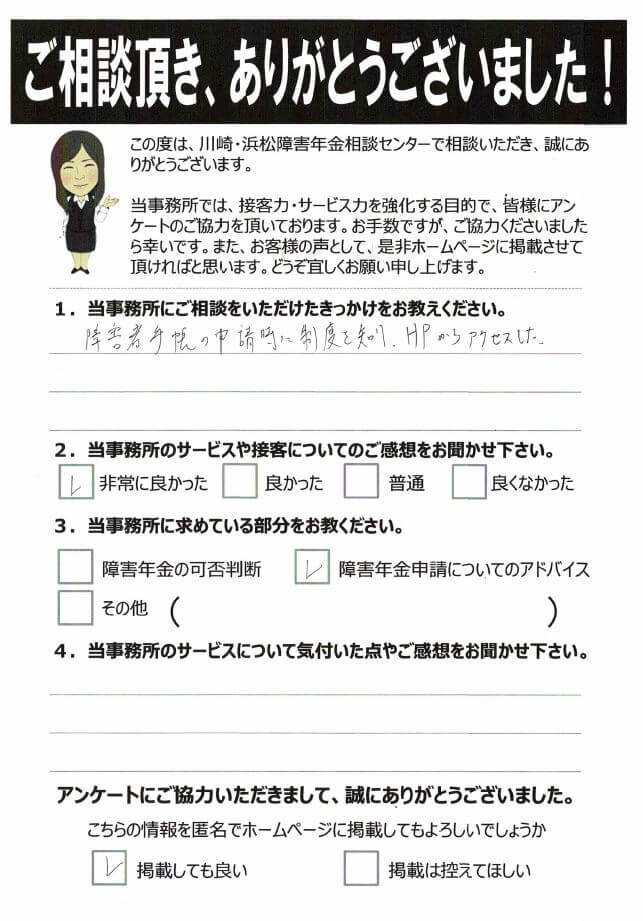 ご相談頂き、ありがとうございました！
この度は、川崎・浜松障害年金相談センターで相談いただき、誠にあ
りがとうございます。
当事務所では、接客力・サービス力を強化する目的で、皆様にアン
ケートのご協力を頂いております。お手数ですが、ご協力くださいました
ら幸いです。また、お客様の声として、是非ホームページに掲載させて
頂ければと思います。どうぞ宜しくお願い申し上げます。
１．当事務所にご相談をいただけたきっかけをお教えください。
障害者手帳の申請時に制度を知り、HPからアクセスした。
２．当事務所のサービスや接客についてのご感想をお聞かせ下さい。
レ 非常に良かった 良かった 普通 良くなかった
３．当事務所に求めている部分をお教ください。
障害年金の可否判断 レ 障害年金申請についてのアドバイス
その他 （ ）
４．当事務所のサービスについて気付いた点やご感想をお聞かせ下さい。
アンケートにご協力いただきまして、誠にありがとうございました。
こちらの情報を匿名でホームページに掲載してもよろしいでしょうか
レ 掲載しても良い 掲載は控えてほしい